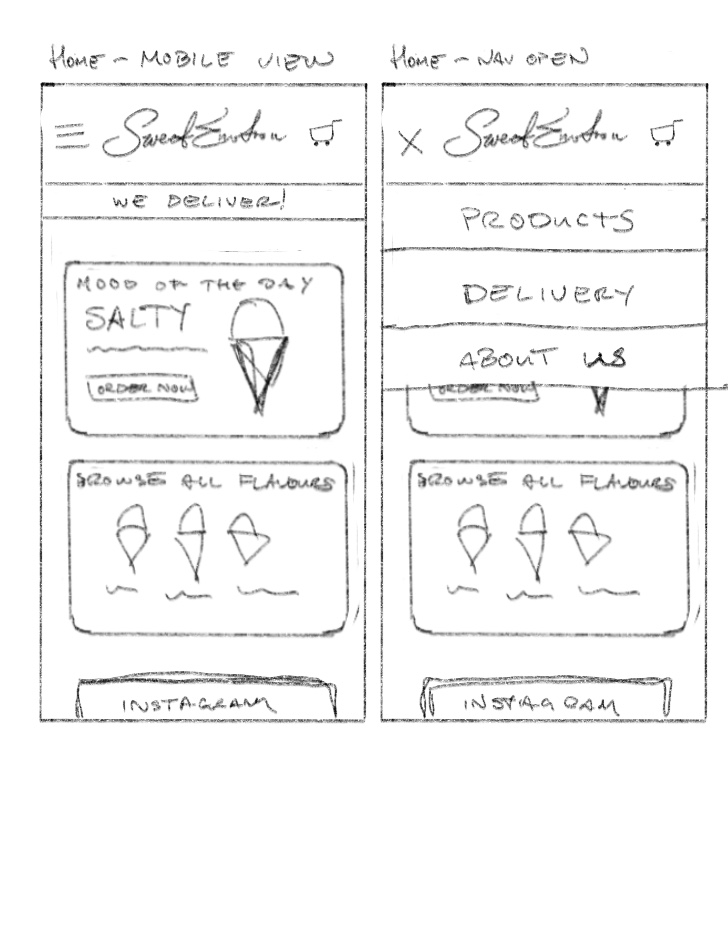 HOME - MOBILE VIEW
Sweet Emotion
WE DELIVER!
MOOD OF THE DAY
SALTY
ORDER NOW
BROWSE ALL FLAVOURS
INSTAGRAM
HOME - NAV OPEN
X Sweet Emotion
PRODUCTS
DELIVERY
ABOUT US
ORDER NOW
BROWSE ALL FLAVOURS
INSTAGRAM